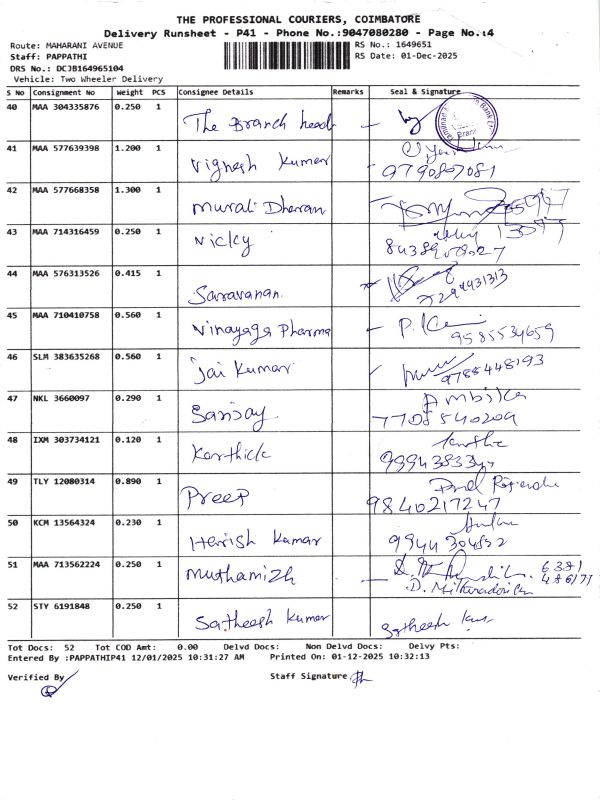 THE PROFESSIONAL COURIERS, COIMBATORE
Delivery Runsheet - P41 - Phone No.:9047080280 - Page No.:4
Route: MAHARANI AVENUE RS No.: 1649651
Staff: PAPPATHI RS Date: 01-Dec-2025
DRS No.: DCJB164965104
Vehicle: Two Wheeler Delivery
S No Consignment No Weight PCS Consignee Details Remarks Seal & Signature
40 MAA 304335876 0.250 1 The Branch head
Branch
41 MAA 577639398 1.200 1 Vignesh Kumar
9790807081
42 MAA 577668358 1.300 1 Murali Dharan
43 MAA 714316459 0.250 1 Nicky
44 MAA 576313526 0.415 1 Saravanan.
45 MAA 710410758 0.560 1 Vinayaga Pharma
9585534659
46 SLM 383635268 0.560 1 Jai Kumar
9788448193
47 NKL 3660097 0.290 1 Sanjay Ambika
7708540209
48 IXM 303734121 0.120 1 Karthick
49 TLY 12080314 0.890 1 Preep
9840217247
50 KCM 13564324 0.230 1 Herish Kumar
9944304832
51 MAA 713562224 0.250 1 Muthamizh
52 STY 6191848 0.250 1 Satheesh Kumar Satheesh
Tot Docs: 52 Tot COD Amt: 0.00 Delvd Docs: Non Delvd Docs: Delvy Pts:
Entered By :PAPPATHIP41 12/01/2025 10:31:27 AM Printed On: 01-12-2025 10:32:13
Verified By Staff Signature